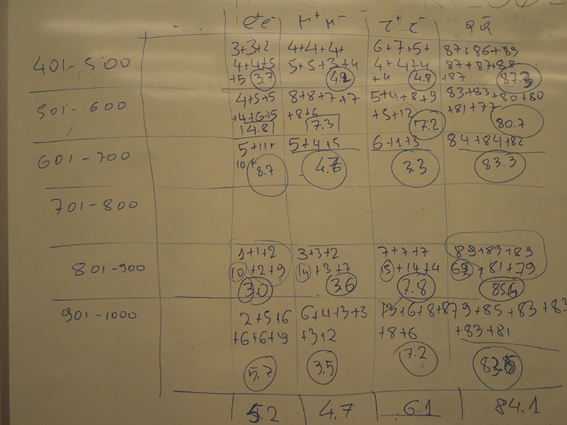 e⁺e⁻ μ⁺μ⁻ τ⁺τ⁻ q q̄
401-500
3+3+2 4+4+4+ 6+7+5+ 87+86+89
4+4+5 5+5+3+4 4+4+4 87+87+88
+5 3.7 4.2 +4 4.8 +87
501-600
4+5+5 8+8+7+7 5+4+8+9 83+83+80+80
+4+6+5 +8+6 +5+12 +81+77
4.8 7.3 7.2 80.7
601-700
5+11+ 5+4+5 6+1+3 84+84+82
10+ 8.7 4.7 3.3 83.3
701-800
801-900
1+1+2 3+3+2 7+7+7 89+89+89
10+2+9 14+3+7 15+14+4 62+81+79
3.0 3.6 7.8
901-1000
2+5+6 6+4+3+3 +6+8+8 79+85+83+83
+6+6+9 +3+2 +8+6 +83+81
5.7 3.5 7.2
5.2 4.7 6.1 84.1